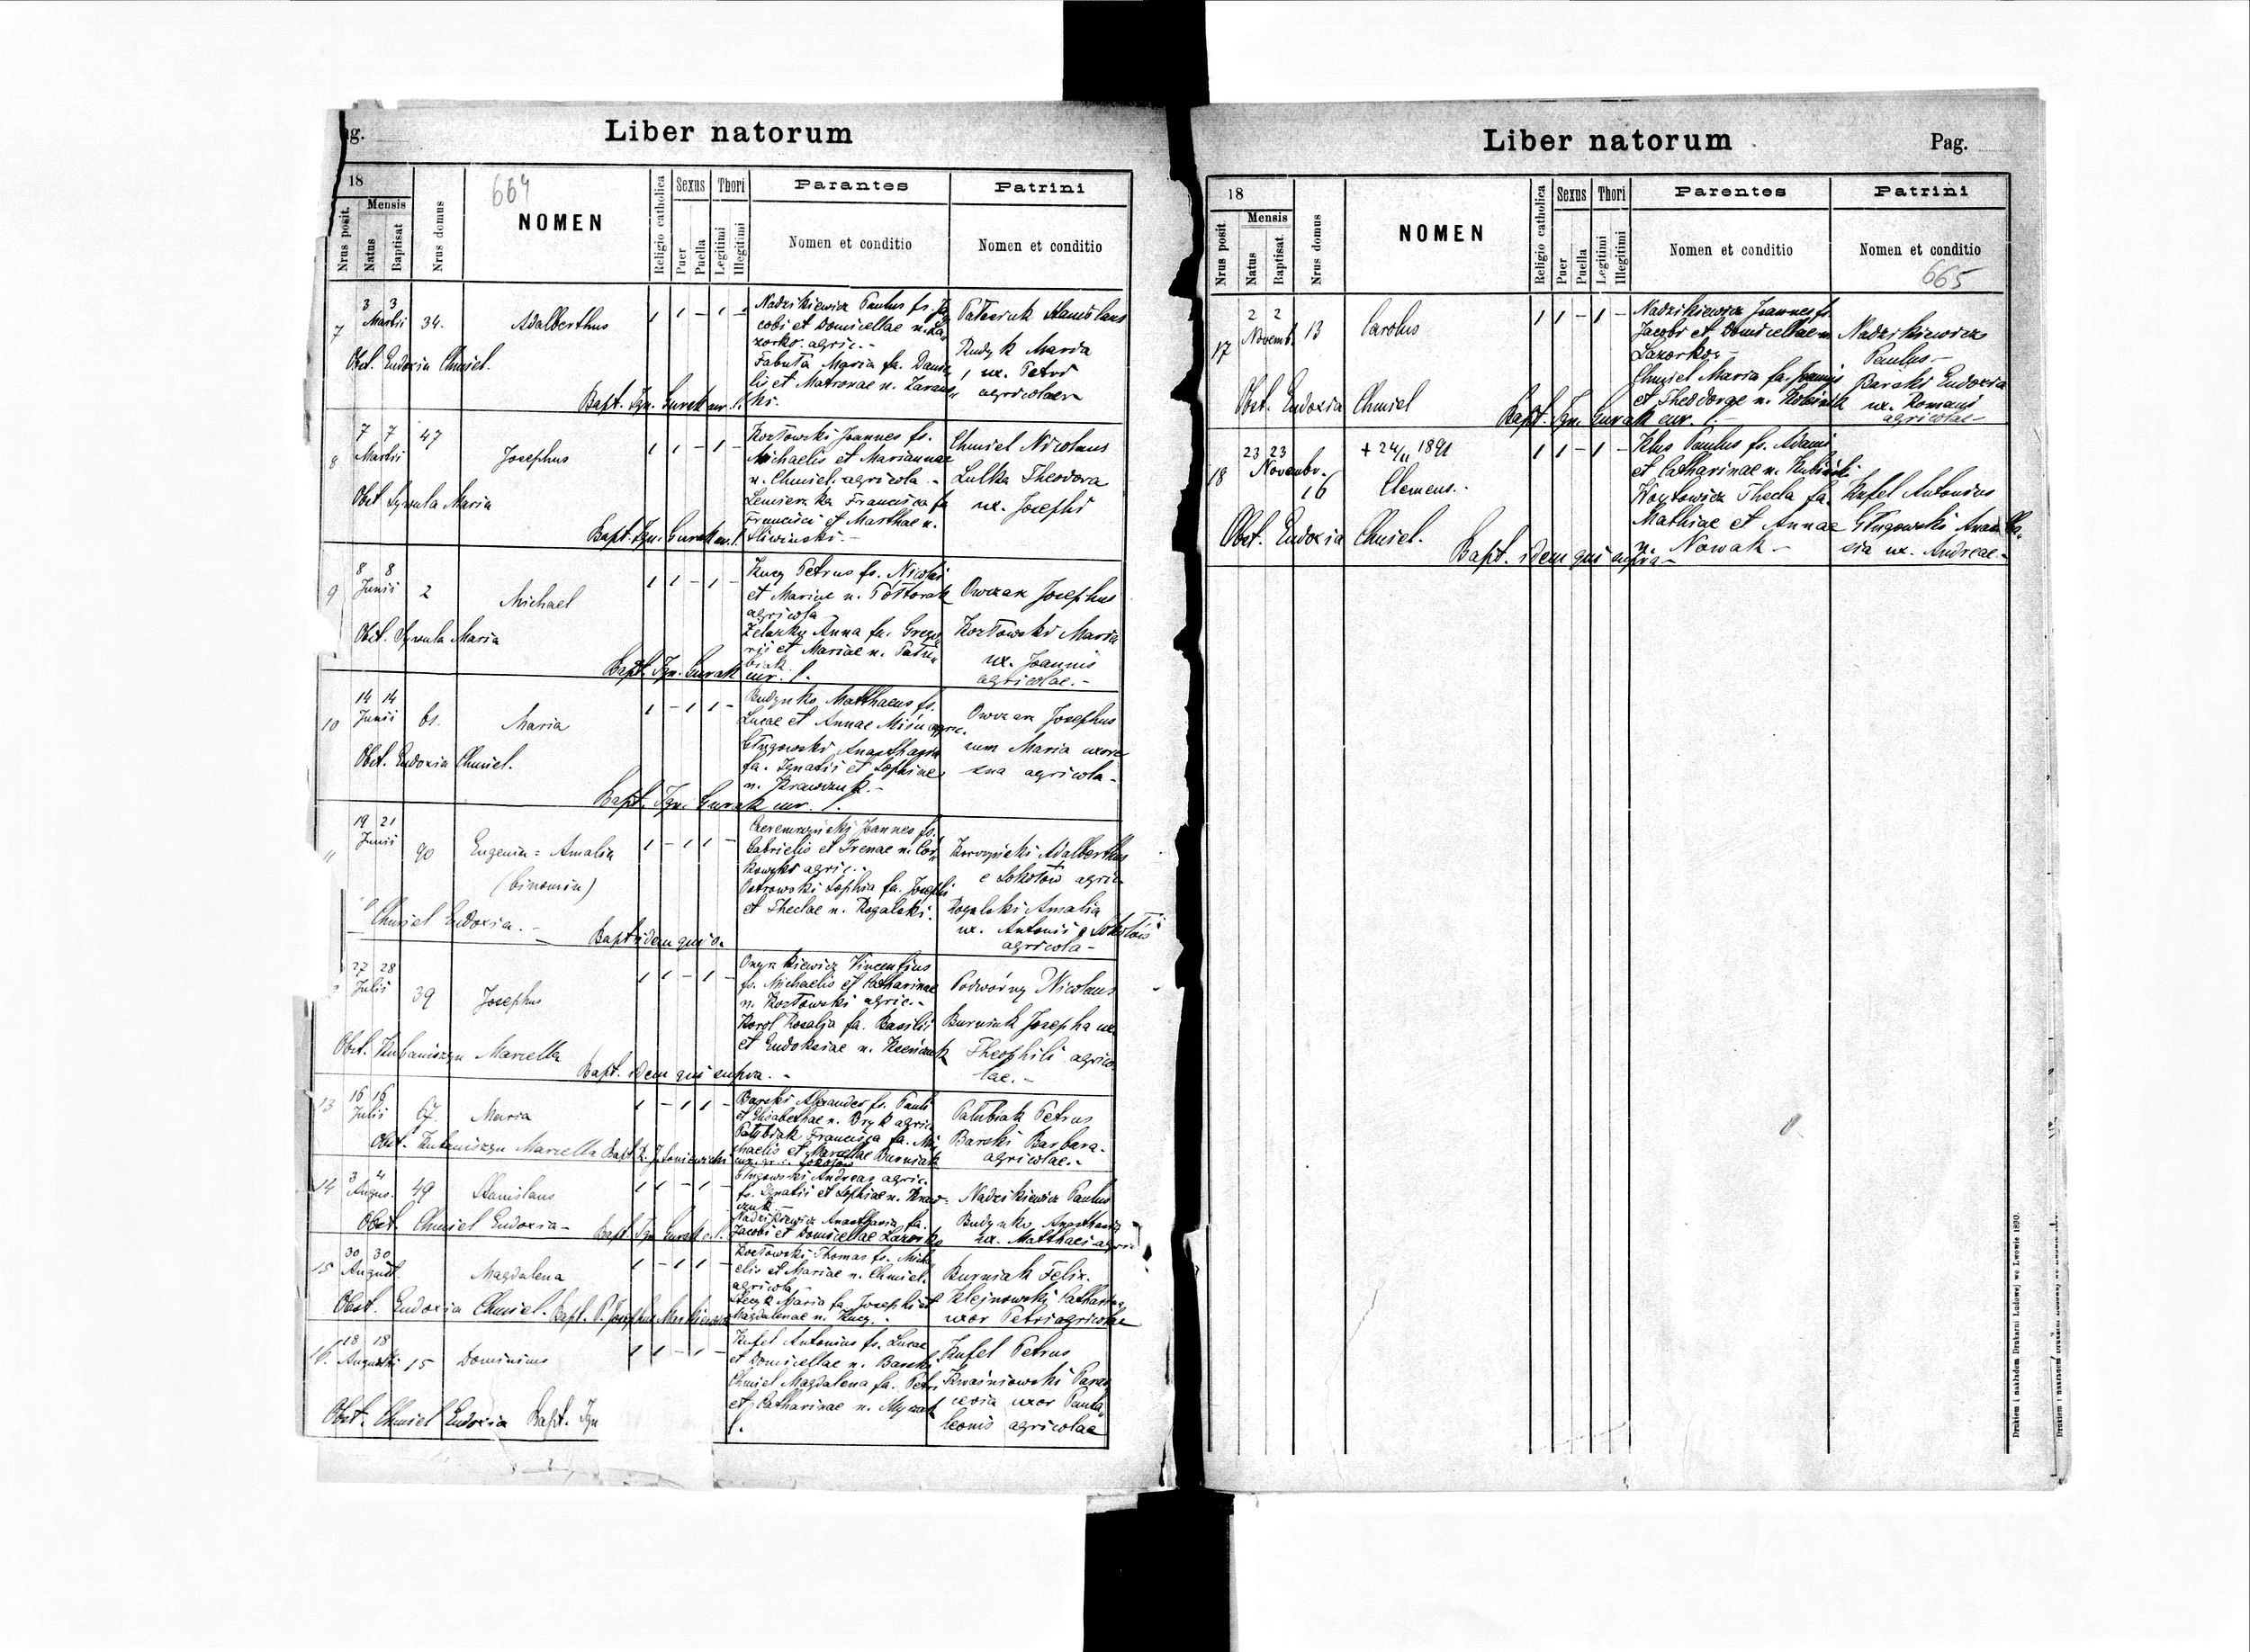 ag.
Liber natorum
18
664
Mensis
Nrus posit.
Natus
Baptisat
Nrus domus
NOMEN
Religio catholica
Sexus
Puer
Puella
Thori
Legitimi
Illegitimi
Parantes
Nomen et conditio
Patrini
Nomen et conditio
7
3 3
Martii
34.
Adalberthus
1 1 - 1 -
Nadzikiewicz Paulus fs. Ja
cobi et Domicellae n. La
zorko. agric.-
Fabuta Maria fa. Dani
lis et Matronae n. Zaraus
ki.
Stanislaus
Rudyk Maria
ux. Petri
agricolae
Obst. Eudoxia Chmiel.
Bapt. Ign. Gurak cur. l.
8
7 7
Martii
47
Josephus
1 1 - 1 -
Kozłowski Joannes fs.
Michaelis et Mariannae
n. Chmiel. agricola -
Francisca fa
Francisci et Marthae n.
Śliwinski.-
Chmiel Nicolaus
Lulka Theodora
ux. Josephi
Obst Sywula Maria
Bapt. Ign. Gurak cur. l.
9
8 8
Junii
2
Michael
1 1 - 1 -
Kucy Petrus fs. Nicolai
et Mariae n. Półtorak
agricola
Żelazko Anna fa. Grego
rii et Mariae n. Pału
biak.
Owczar Josephus
Kozłowski Maria
ux. Joannis
agricolae.-
Obst. Sywula Maria
Bapt. Ign. Gurak cur. l.
10
14 14
Junii
61.
Maria
1 - 1 1 -
Budynko Matthaeus fs.
Lucae et Annae Miśu agric.
Gługowski Anasthasia
fa. Ignatii et Sophiae
n. Krawczuk.-
Owczar Josephus
cum Maria uxore
sua agricola-
Obst. Eudoxia Chmiel.
Bapt. Ign. Gurak cur. l.
11
19 21
Junii
90
Eugenia = Amalia
(binomin)
1 - 1 1 -
Joannes fs.
Gabrielis et Irenae n.
agric.-
Ostrowski Sophia fa. Josephi
et Theclae n. Rogalski.
Adalberthus
e Sokołów agric
Rogalski Amalia
ux. Antonii e Sokołów
agricola-
Chmiel Eudoxia.-
Bapt idem qui s.
27 28
Julii
39
Josephus
1 1 - 1 -
Onyszkiewicz Vincentius
fs. Michaelis et Catharinae
n. Kozłowski agric.-
Korol Rosalja fa. Basilii
et Eudoksiae n.
Podwórny Nicolaus
Burniak Josepha ux
Theophili agrico
lae.-
Obst. Kubaniszyn Marcella
Bapt. idem qui supra.-
13
16 16
Julii
67
Maria
1 - 1 1 -
Barski Alexander fs. Pauli
et Elisabethae n. Bryk agric
Pałubiak Francisca fa. Mi
chaelis et Marcellae Burniak
Pałubiak Petrus
Barski Barbara.
agricolae.-
Obst. Kubaniszyn Marcella
14
3 4
Augus.
49
Stanislaus
1 1 - 1 -
Gługowski Andreas agric.
fs. Ignatii et Sophiae n. Kraw
czuk
Nadzikiewicz Anasthasia fa.
Jacobi et Domicellae Lazorko
Nadzikiewicz Paulus
Budynko Anasthasia
ux. Matthaei agric
Obst. Chmiel Eudoxia-
Bapt. Ign Gurak c. l.
15
30 30
August
Magdalena
1 - 1 1 -
Kozłowski Thomas fs. Micha
elis et Mariae n. Chmiel.
agricola
Maria fa Josephi et
Magdalenae n. Kucy.-
Burniak Felix.
Klejnowski Catharina
uxor Petri agricolae
Obst. Eudoxia Chmiel.
Bapt. P. Josephus
16.
18 18
Augusti
15
Dominicus
1 1 - 1 -
Kufel Antonius fs. Lucae
et Domicellae n. Barski
Chmiel Magdalena fa. Petri
et Catharinae n.
l.
Kufel Petrus
Kwaśniowski Paras
cevia uxor Panta
leonis agricolae
Obst. Chmiel Eudoxia Bapt. Ign
Liber natorum
Pag.
18
Mensis
Nrus posit.
Natus
Baptisat.
Nrus domus
NOMEN
Religio catholica
Sexus
Puer
Puella
Thori
Legitimi
Illegitimi
Parentes
Nomen et conditio
Patrini
Nomen et conditio
665
17
2 2
Novemb.
13
Carolus
1 1 - 1 -
Nadzikiewicz Joannes fs.
Jacobi et Domicellae n.
Lazorko-
Chmiel Maria fa. Joannis
et Theodorae n.
Nadzikiewicz
Paulus-
Barski Eudoxia
ux. Romani
agricolae-
Obst. Eudoxia Chmiel
Bapt. Ign. Gurak cur. l.-
18
23 23
Novembr.
16
+ 24/11 1891
Clemens.-
1 1 - 1 -
Klus Paulus fs. Adami
et Catharinae n.
Woytowicz Thecla fa.
Mathiae et Annae
n. Nowak-
Kufel Antonius
Gługowski Anastha
sia ux. Andreae-
Obst. Eudoxia Chmiel.
Bapt. idem qui supra-
Drukiem i nakładem Drukarni Ludowej we Lwowie 1890.